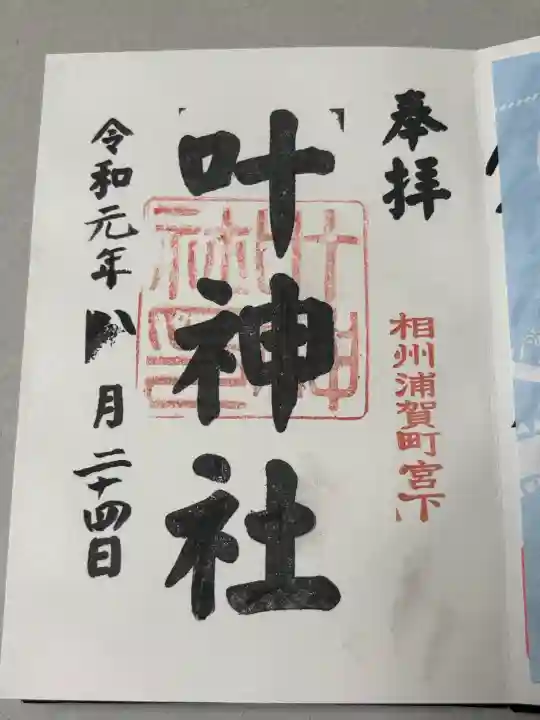 奉拝
相州浦賀町宮下
叶神社
叶神社印
令和元年八月二十四日